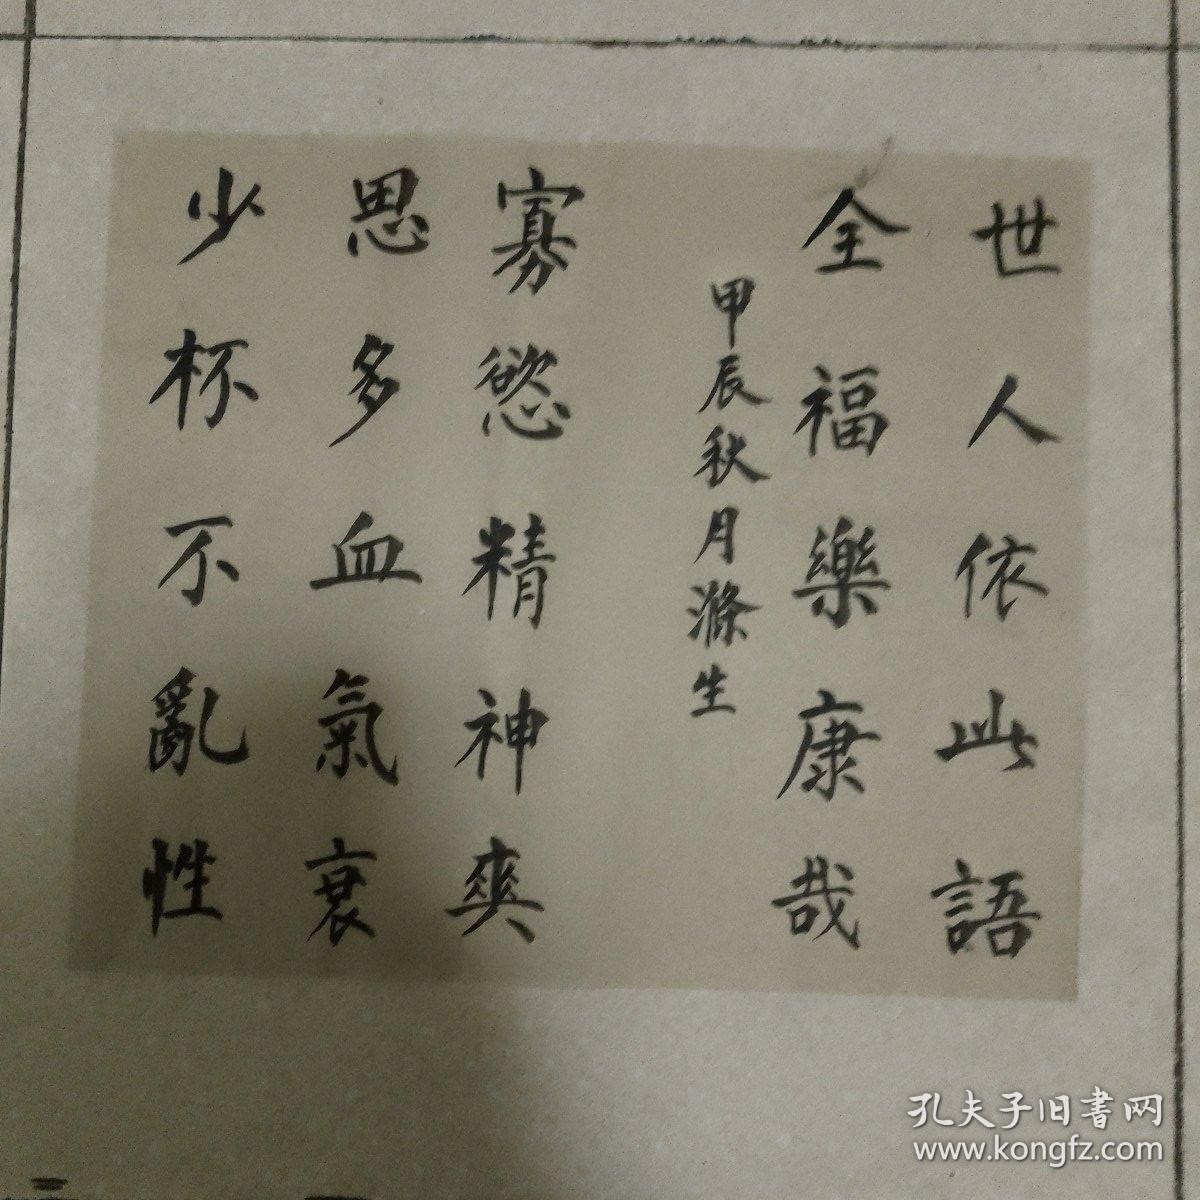 世人依此語
全福樂康哉
甲辰秋月滌生
寡慾精神爽
思多血氣衰
少杯不亂性
孔夫子旧書网
www.kongfz.com